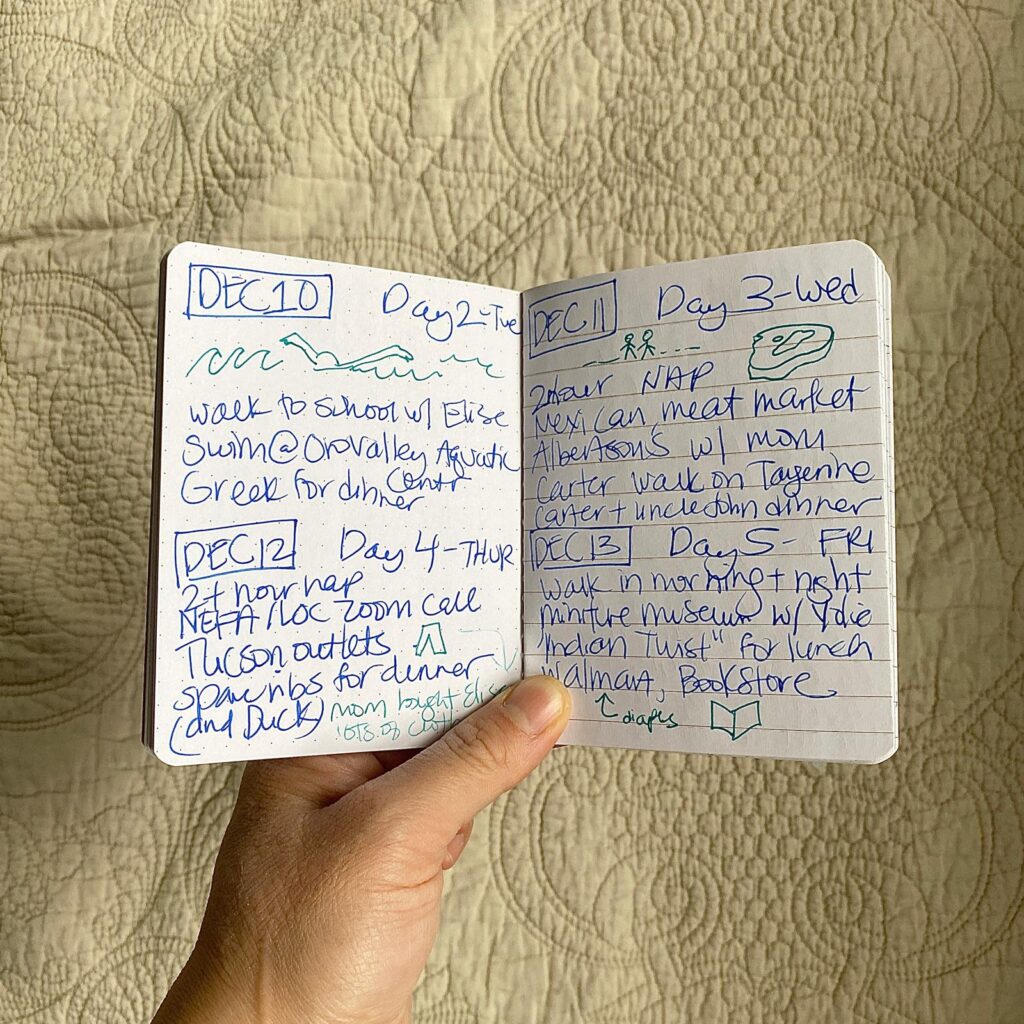 DEC 10 Day 2-Tue
walk to school w/ Elise
Swim @ Oro valley Aquatic
Centr
Greek for dinner
DEC 12 Day 4-THUR
2+ hour nap
NEFA/LOC zoom call
Tucson outlets
spare ribs for dinner
(and Duck)
mom bought Elise
lots of
DEC 11 Day 3-Wed
2 hour NAP
Mexican meat market
Albertson's w/ mom
carter walk on Tangerine
carter + uncle John dinner
DEC 13 Day 5- FRI
walk in morning + night
minture museum w/ Ydie
"Indian Twist" for lunch
Walmart, Bookstore
diapes